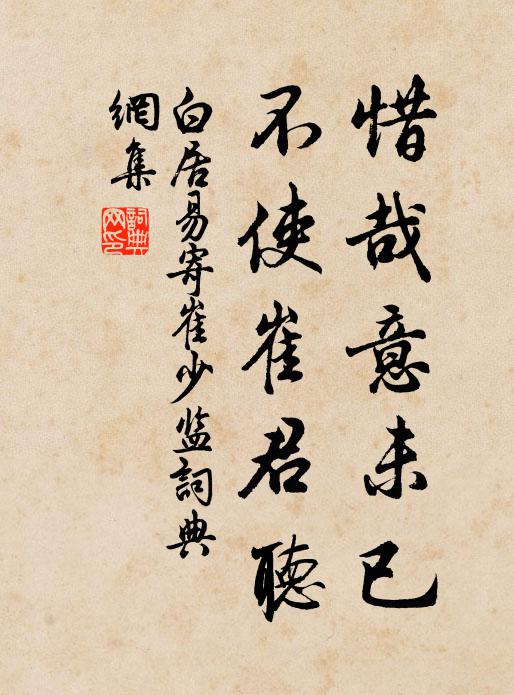 惜哉意未已
不使崔君聽
白居易寄崔少监詞典
網集
詞典
网印